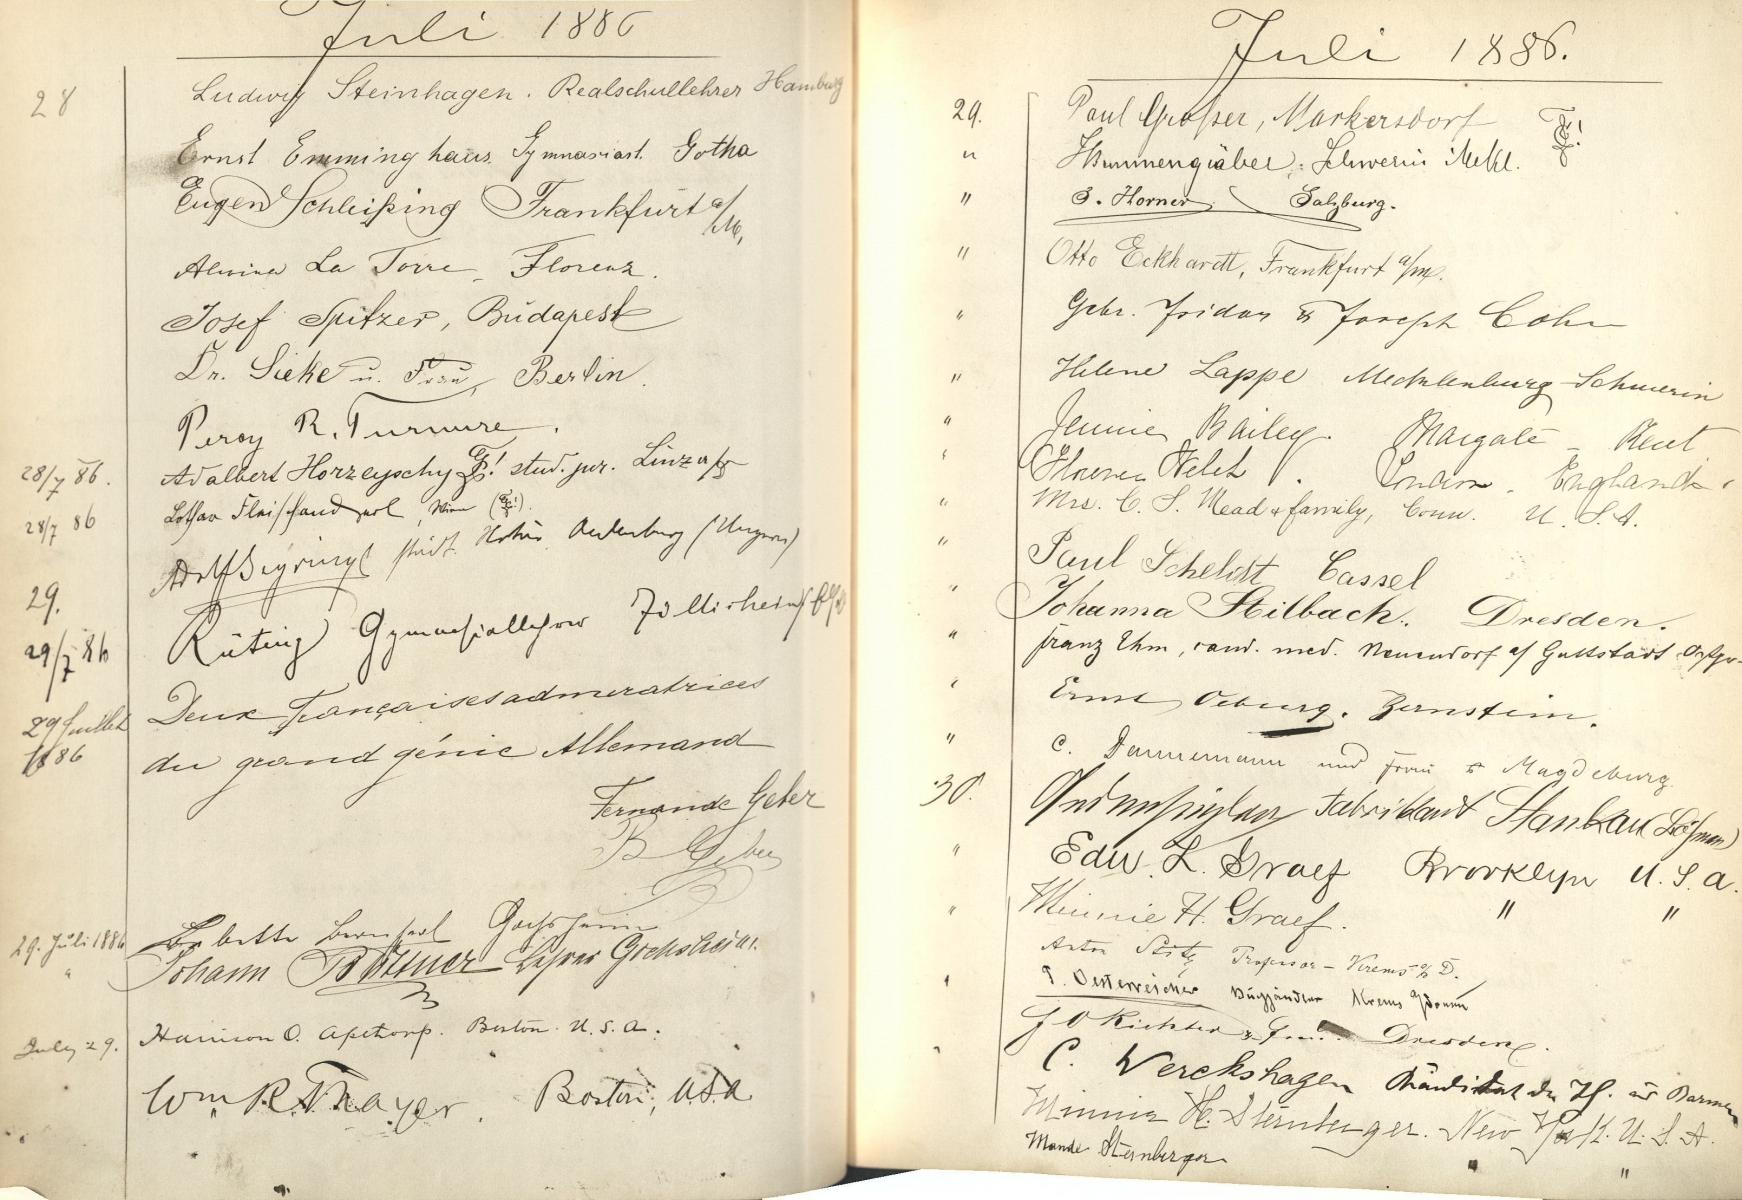 Juli 1886
28 Ludwig Steinhagen. Realschullehrer Hamburg
Ernst Emminghaus Gymnasiast. Gotha
Eugen Schleißing Frankfurt a/M,
Alwina La Torre – Florenz.
Josef Spitzer, Budapest
Dr. Sieke u. Frau, Berlin.
Percy R. Turnure.
28/7 86. Adalbert Horzeyschy stud. jur. Linz a/D
28/7 86 Lothar Wien
29. Adolf (Ungarn)
29/7 86 Rüting
29 Juillet 1886 Deux Françaises admiratrices
du grand génie Allemand
Fernande Geber
B Geber
29. Juli 1886 Babette Gochsheim
" Johann Büttner Lehrer Gochsheim.
July 29. Harrison O. Apthorp. Boston. U.S.A.
Wm R. Thayer, Boston, U.S.A.
Juli 1886.
29. Paul Großer, Markersdorf
" H Brunnengräber, Schwerin Mekl.
" J. Horner Salzburg.
" Otto Eckhardt, Frankfurt a/M.
" Gebr. & Joseph Cohn
" Helene Lappe Mecklenburg-Schwerin
" Jennie Bailey. Margate – Kent
" Florence Welch. London. England.
" Mrs. C. S. Mead & family, Conn. U.S.A.
" Paul Scheldt Cassel
" Johanna Stilbach. Dresden.
" Franz Ehm, cand. med. Neuendorf a/ Guttstadt Ostpr.
" Ernst Bernstein.
" C. Dannemann und Frau Magdeburg
30. Fabrikant Stankau (Böhmen)
" Edw. L. Graef Brooklyn U.S.A.
" Minnie H. Graef. " "
Professor – Krems a/D.
" Oesterreicher Krems a/Donau
G O Richter & Dresden.
" C. Werckshagen aus Barmen
Minnie H. Sternberger. New York. U.S.A.
Maude Sternberger "